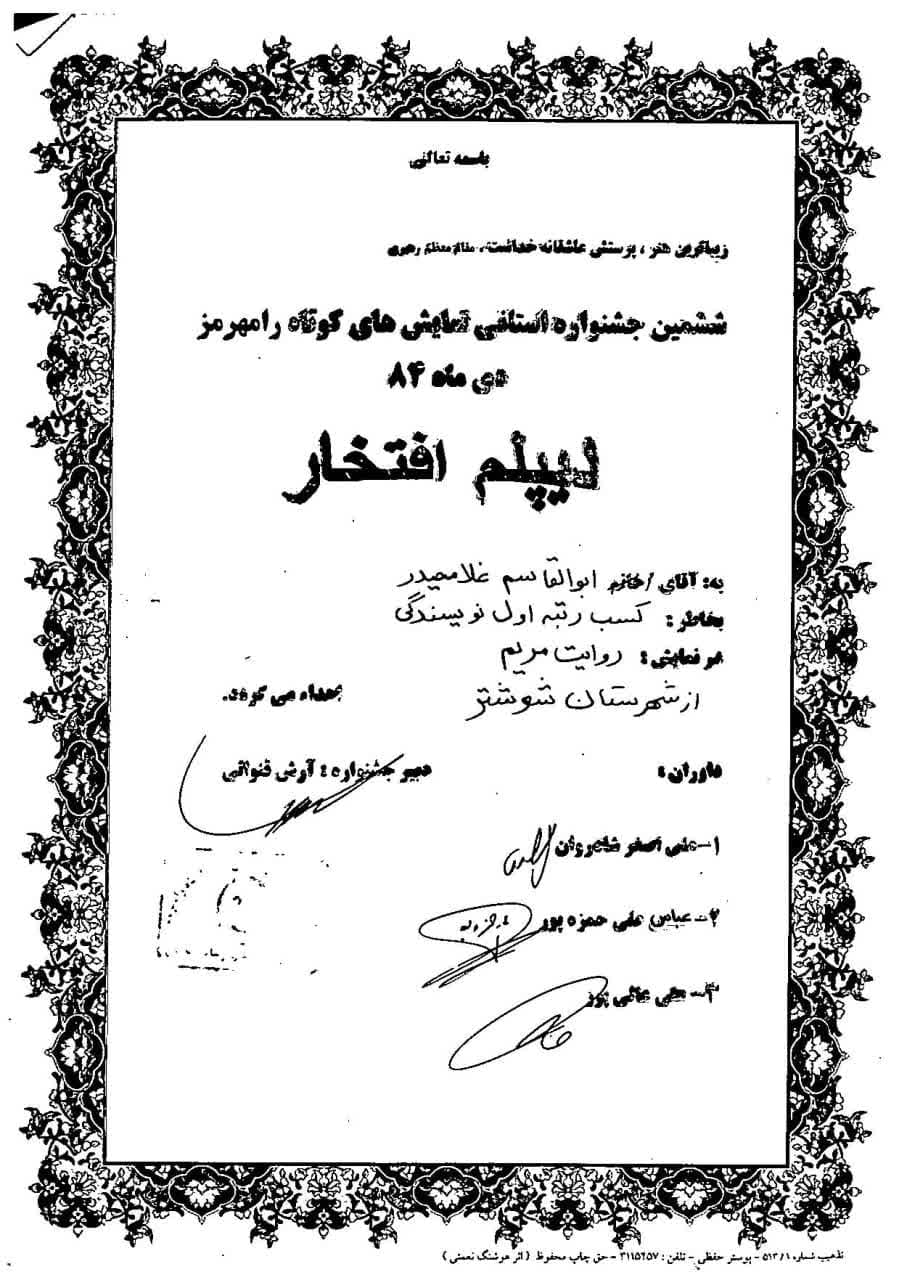 باسمه تعالی
زیباترین هنر ، پرستش عاشقانه خداست. مقام معظم رهبری
ششمین جشنواره استانی نمایش های کوتاه رامهرمز
دی ماه ۸۴
دیپلم افتخار
به: آقای / خانم ابوالقاسم غلامحیدر
بخاطر : کسب رتبه اول نویسندگی
در نمایش : روایت مریم
از شهرستان شوشتر اهداء می گردد.
داوران : دبیر جشنواره : آرش قنواتی
۱- علی اصغر شادروان
۲- عباس علی حمزه پور
۳- علی عالی پور
تذهیب شماره ۵۱۳/۱ - پوستر حفظی - تلفن : ۳۱۱۵۲۵۷ - حق چاپ محفوظ ( اثر هوشنگ نعمتی )